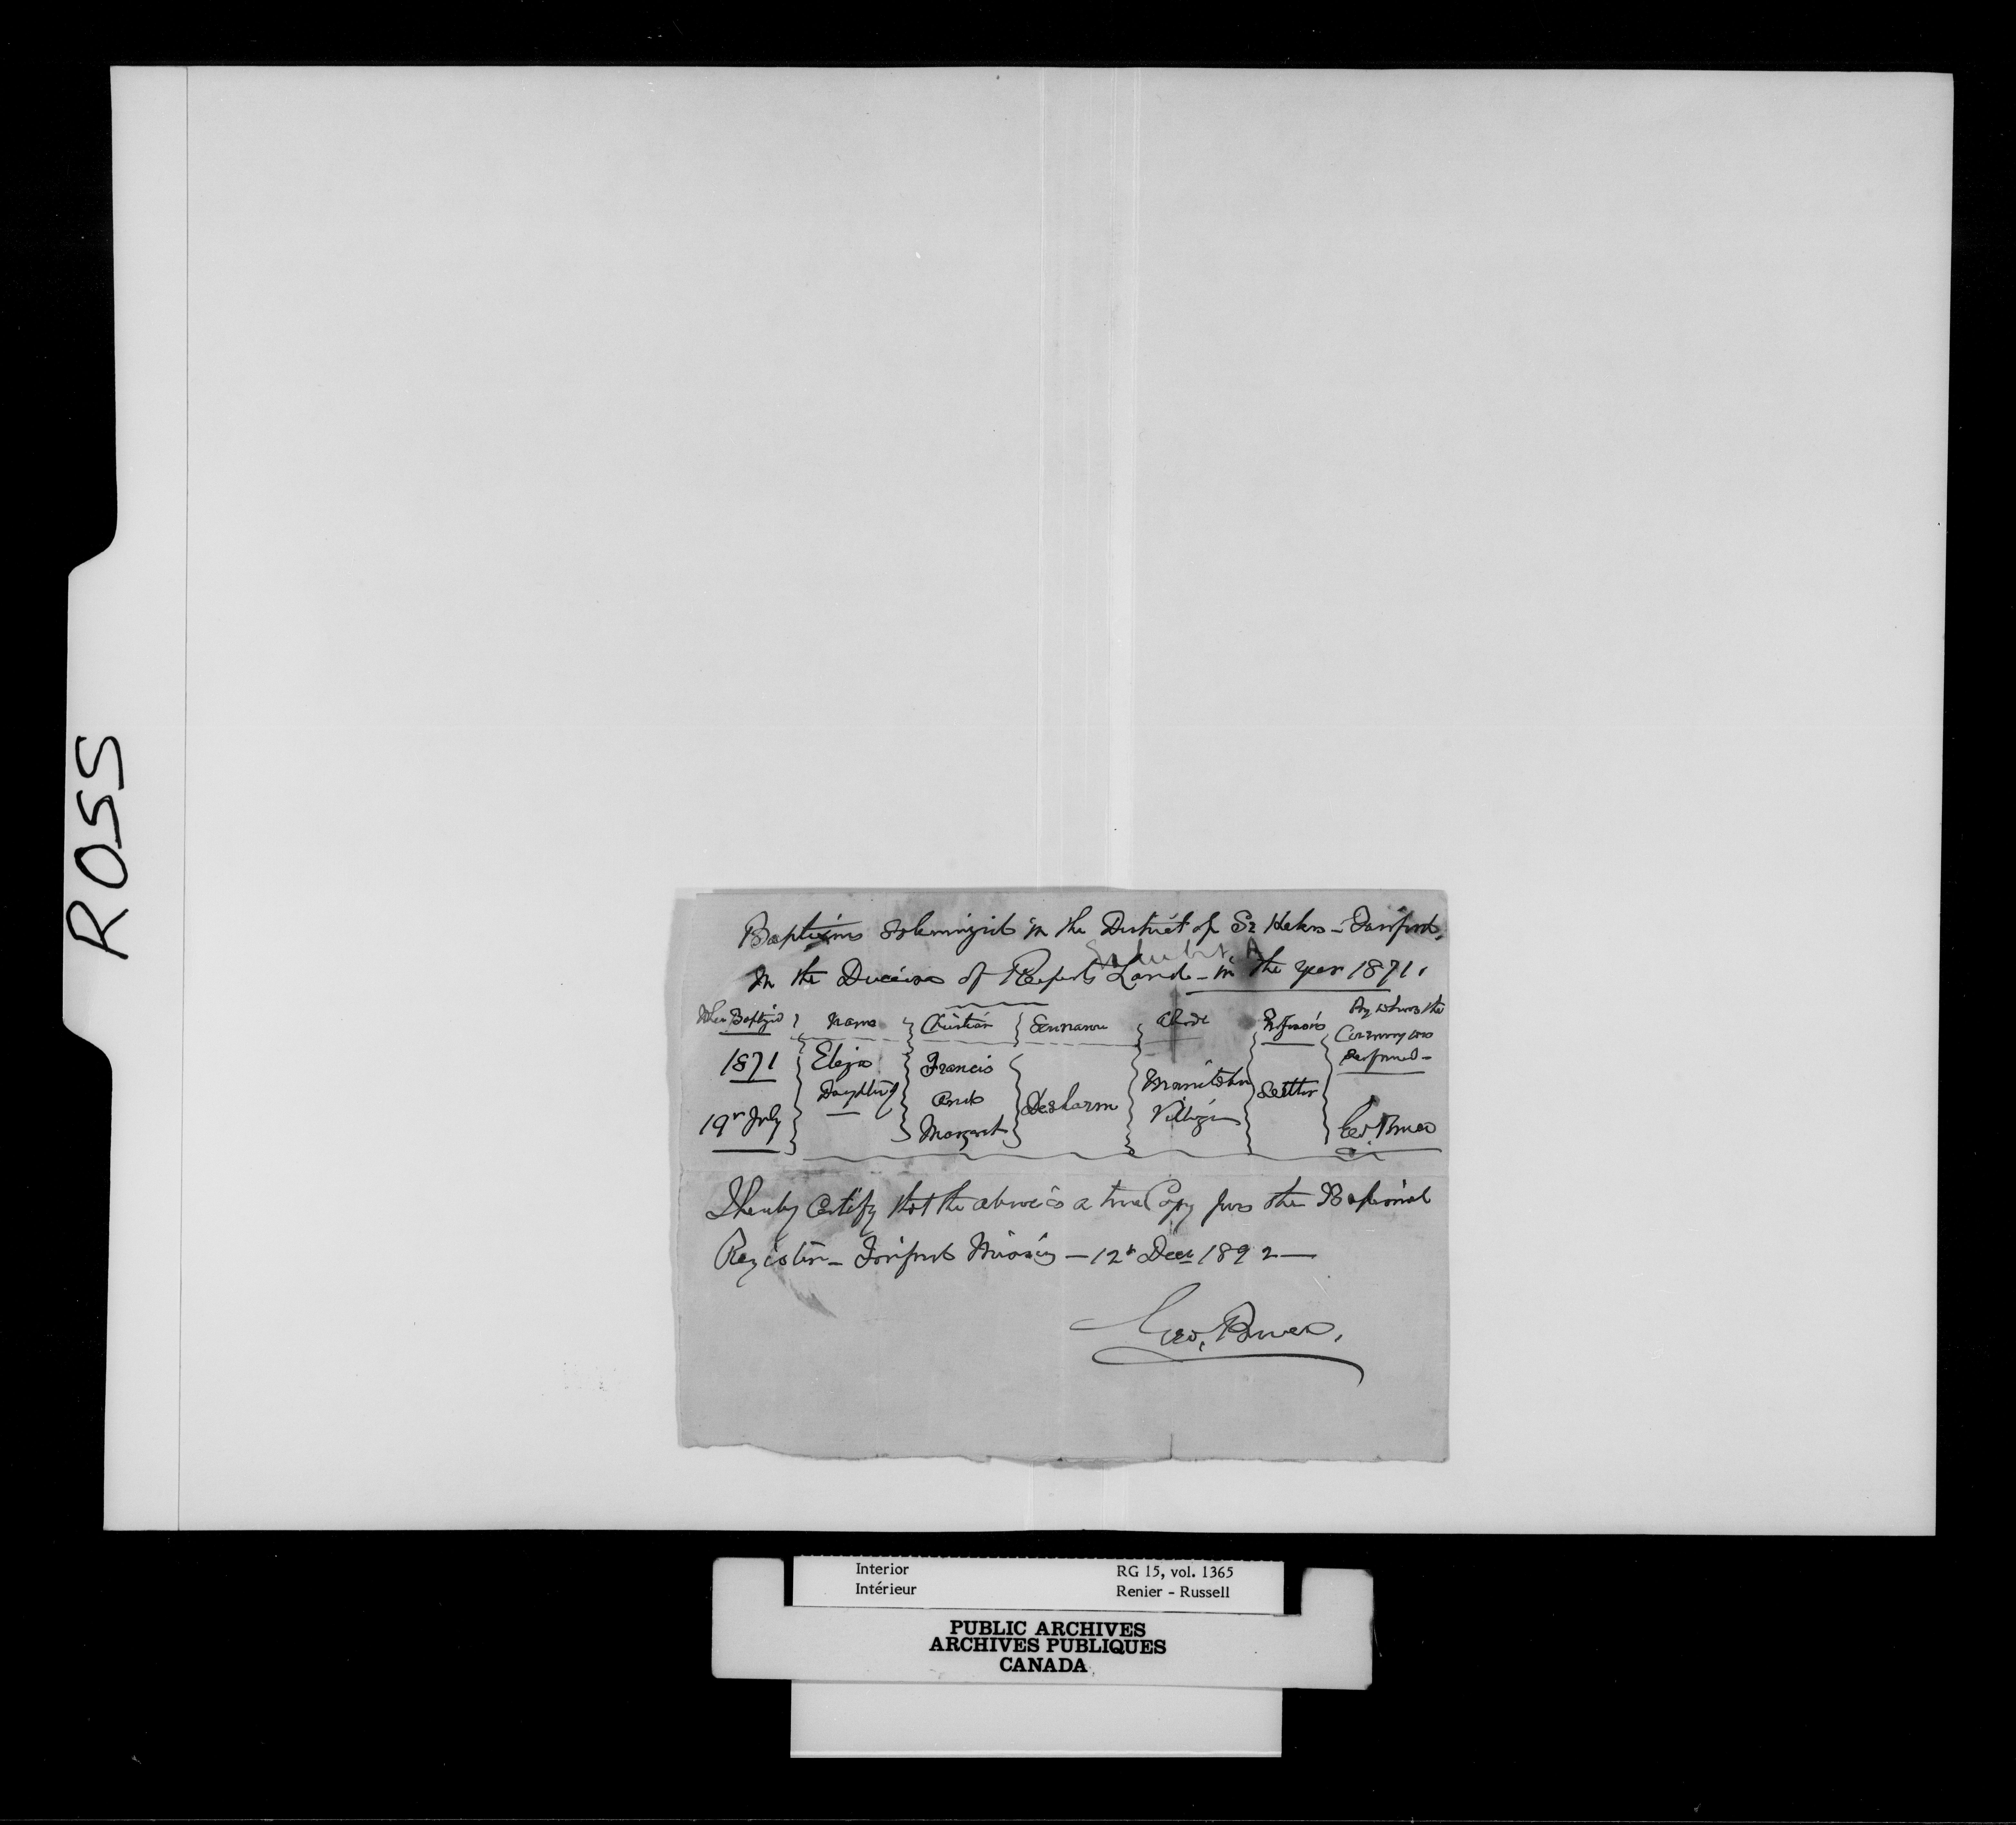 ROSS
Baptisms solemnized in the District of St Helens - Fairford,
Exhibit A
In the Diocese of Ruperts Land - in the year 1871.
When Baptized Name Christian Surname Abode Profession By whom the Ceremony was performed -
1871 Eliza Francis
Daughter of and Desharm Manitoba Village Settler
19th July Margaret Geo. Bruce
I hereby certify that the above is a true Copy from the Baptismal
Register - Fairford Mission - 12th Decr 1892 -
Geo. Bruce.
Interior RG 15, vol. 1365
Intérieur Renier - Russell
PUBLIC ARCHIVES
ARCHIVES PUBLIQUES
CANADA